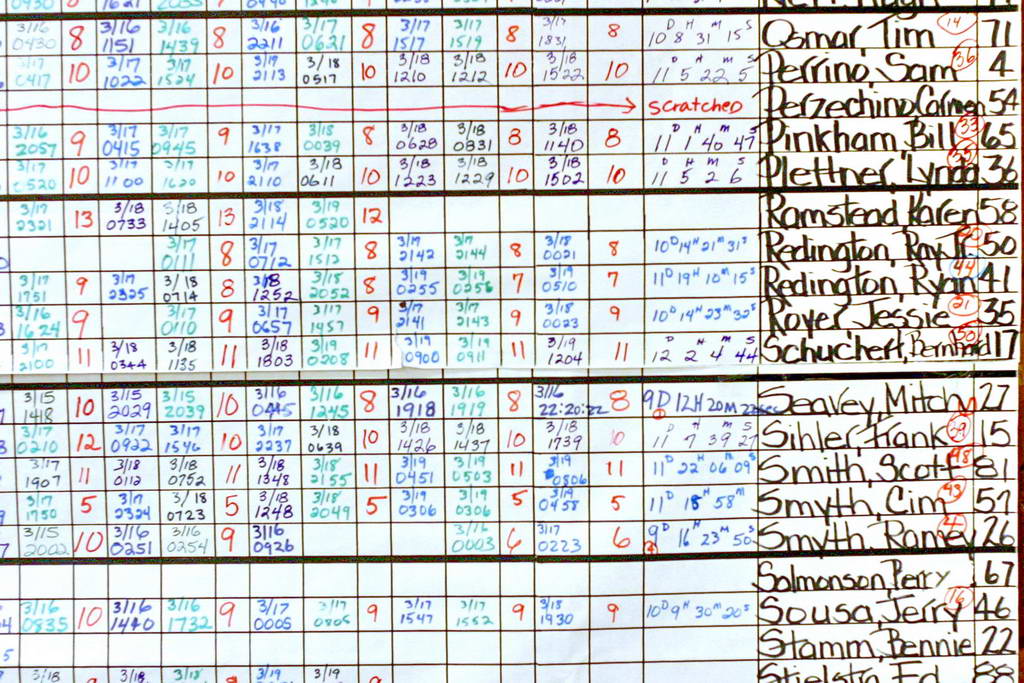 3/16 3/16 3/16 3/16 3/17 3/17 3/17 3/17 D H M S
0430 8 1151 1439 8 2211 0621 8 1517 1519 8 1831 8 10 8 31 15 Osmar, Tim 14 71
3/17 3/17 3/17 3/17 3/18 3/18 3/18 3/18 D H M S
0417 10 1022 1524 10 2113 0517 10 1210 1212 10 1522 10 11 5 22 5 Perrino, Sam 36 4
scratched 54
3/16 3/17 3/17 3/17 3/18 3/18 3/18 3/18 D H M S
2057 9 0415 0945 9 1638 0039 8 0628 0831 8 1140 8 11 1 40 47 Pinkham, Bill 33 65
3/17 3/17 3/17 3/17 3/18 3/18 3/18 3/18 D H M S
0520 10 1100 1620 10 2110 0611 10 1223 1229 10 1502 10 11 5 2 6 Plettner, Lynda 36
3/17 3/18 3/18 3/18 3/19
2321 13 0733 1405 13 2114 0520 12 Ramstead Karen 58
3/17 3/17 3/17 3/17 3/17 3/18
0111 8 0712 1512 8 2142 2144 8 0021 8 10D 14H 21M 31S Redington, Ray Jr. 20 50
3/17 3/17 3/18 3/18 3/15 3/19 3/19 3/19
1751 9 2325 0714 8 1252 2052 8 0255 0256 7 0510 7 11D 19H 10M 15S Redington, Ryan 44 41
3/16 3/17 3/17 3/17 3/17 3/17 3/18
1624 9 0110 9 0657 1457 9 2141 2143 9 0023 9 10D 14H 23M 32S Royer, Jessie 21 35
3/17 3/18 3/18 3/18 3/19 3/19 3/19 3/19 D H M S
2100 11 0344 1135 11 1803 0208 11 0900 0911 11 1204 11 12 2 4 44 Schuchert, Bernhard 50 17
3/15 3/15 3/15 3/16 3/16 3/16 3/16 3/16
1418 10 2029 2039 10 0445 1245 8 1918 1919 8 22:20:22 8 9D 12H 20M Seavey, Mitch 1 27
3/17 3/17 3/17 3/17 3/18 3/18 3/18 3/18 D H M S
0210 12 0922 1546 10 2237 0639 10 1426 1437 10 1739 10 11 7 39 27 Sihler, Hank 39 15
3/17 3/18 3/18 3/18 3/18 3/19 3/19 3/19
1907 11 0112 0752 11 1348 2155 11 0451 0503 11 0806 11 11D 22H 06M 09S Smith, Scott 48 81
3/17 3/17 3/18 3/18 3/18 3/19 3/19 3/19
1750 5 2324 0723 5 1248 2049 5 0306 0306 5 0458 5 11D 18H 58M Smyth, Cim 43 57
3/15 3/16 3/16 3/16 3/16 3/17 D H M S
2002 10 0251 0254 9 0926 0003 6 0223 6 9 16 23 50 Smyth, Ramey 26
Salmonson, Perry 67
3/16 3/16 3/16 3/17 3/17 3/17 3/17 3/18
0835 10 1440 1732 9 0005 0805 9 1547 1552 9 1930 9 10D 9H 30M 20S Sousa, Jerry 16 46
Stamm, Bennie 22
3/18 3/18 3/18 3/19 3/19
Stielstra, Ed 88